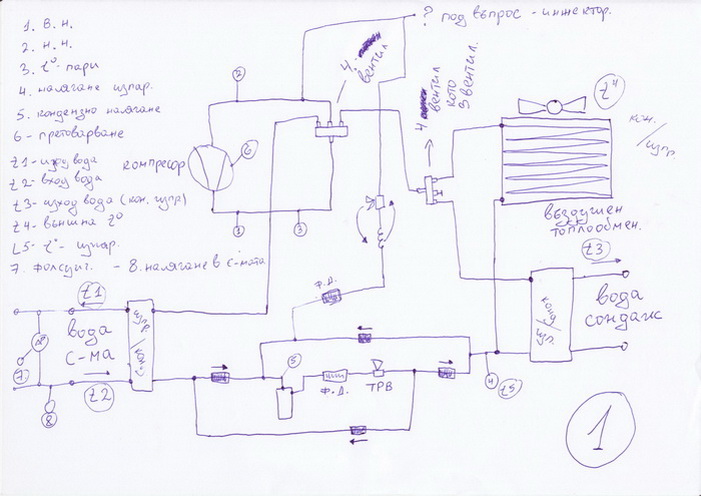 1. В. Н.
2. Н. Н.
3. t° - пари
4. налягане изпар.
5. кондензно налягане
6 - претоварване
t1 - изход вода
t2 - вход вода
t3 - изход вода (кон. изпр)
t4 - външна t°
t5 - t° - изпар.
7. фолсуич. - 8. налягане в с-мата
? под въпрос - инжектор.
4.
вентил
4
вентил
като
3 вентил.
t4
кон.
/
изпр.
2
6
компресор
1
3
въздушен
топлообмен.
t3
вода
сондаж
изп. / конд
Ф.Д.
t1
вода
с-ма
t2
изпр. / конд.
ΔP
7
8
5
Ф.Д.
ТРВ
4
t5
1